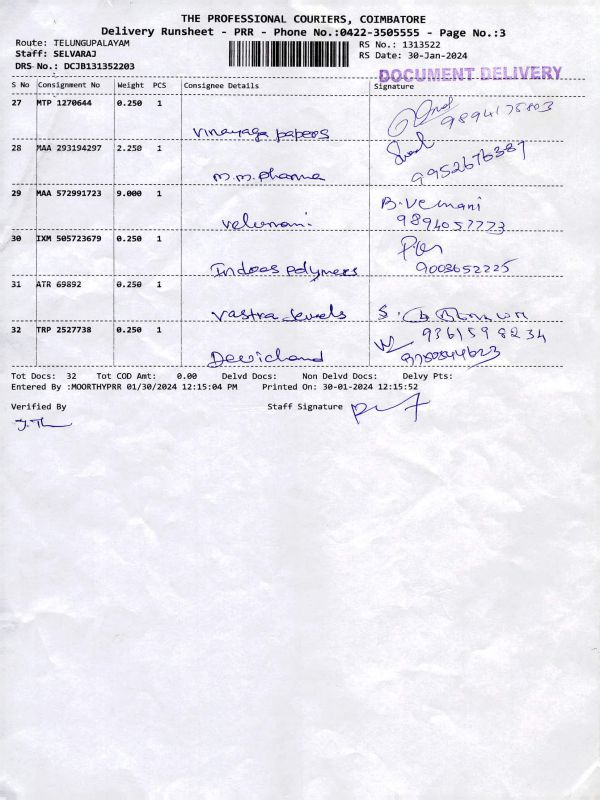 THE PROFESSIONAL COURIERS, COIMBATORE
Delivery Runsheet - PRR - Phone No.:0422-3505555 - Page No.:3
Route: TELUNGUPALAYAM
RS No.: 1313522
Staff: SELVARAJ
RS Date: 30-Jan-2024
DRS No.: DCJB131352203
DOCUMENT DELIVERY
S No Consignment No Weight PCS Consignee Details Signature
27 MTP 1270644 0.250 1
Vinayaga papers 9894175803
28 MAA 293194297 2.250 1
M.M. Pharma 9952676387
29 MAA 572991723 9.000 1 B. Velmani
Velumani 9894057773
30 IXM 505723679 0.250 1
Indoos polymers 9003652225
31 ATR 69892 0.250 1
Vastra Jewels S.
32 TRP 2527738 0.250 1 9361598234
Devichand 9750544623
Tot Docs: 32 Tot COD Amt: 0.00 Delvd Docs: Non Delvd Docs: Delvy Pts:
Entered By :MOORTHYPRR 01/30/2024 12:15:04 PM Printed On: 30-01-2024 12:15:52
Verified By Staff Signature